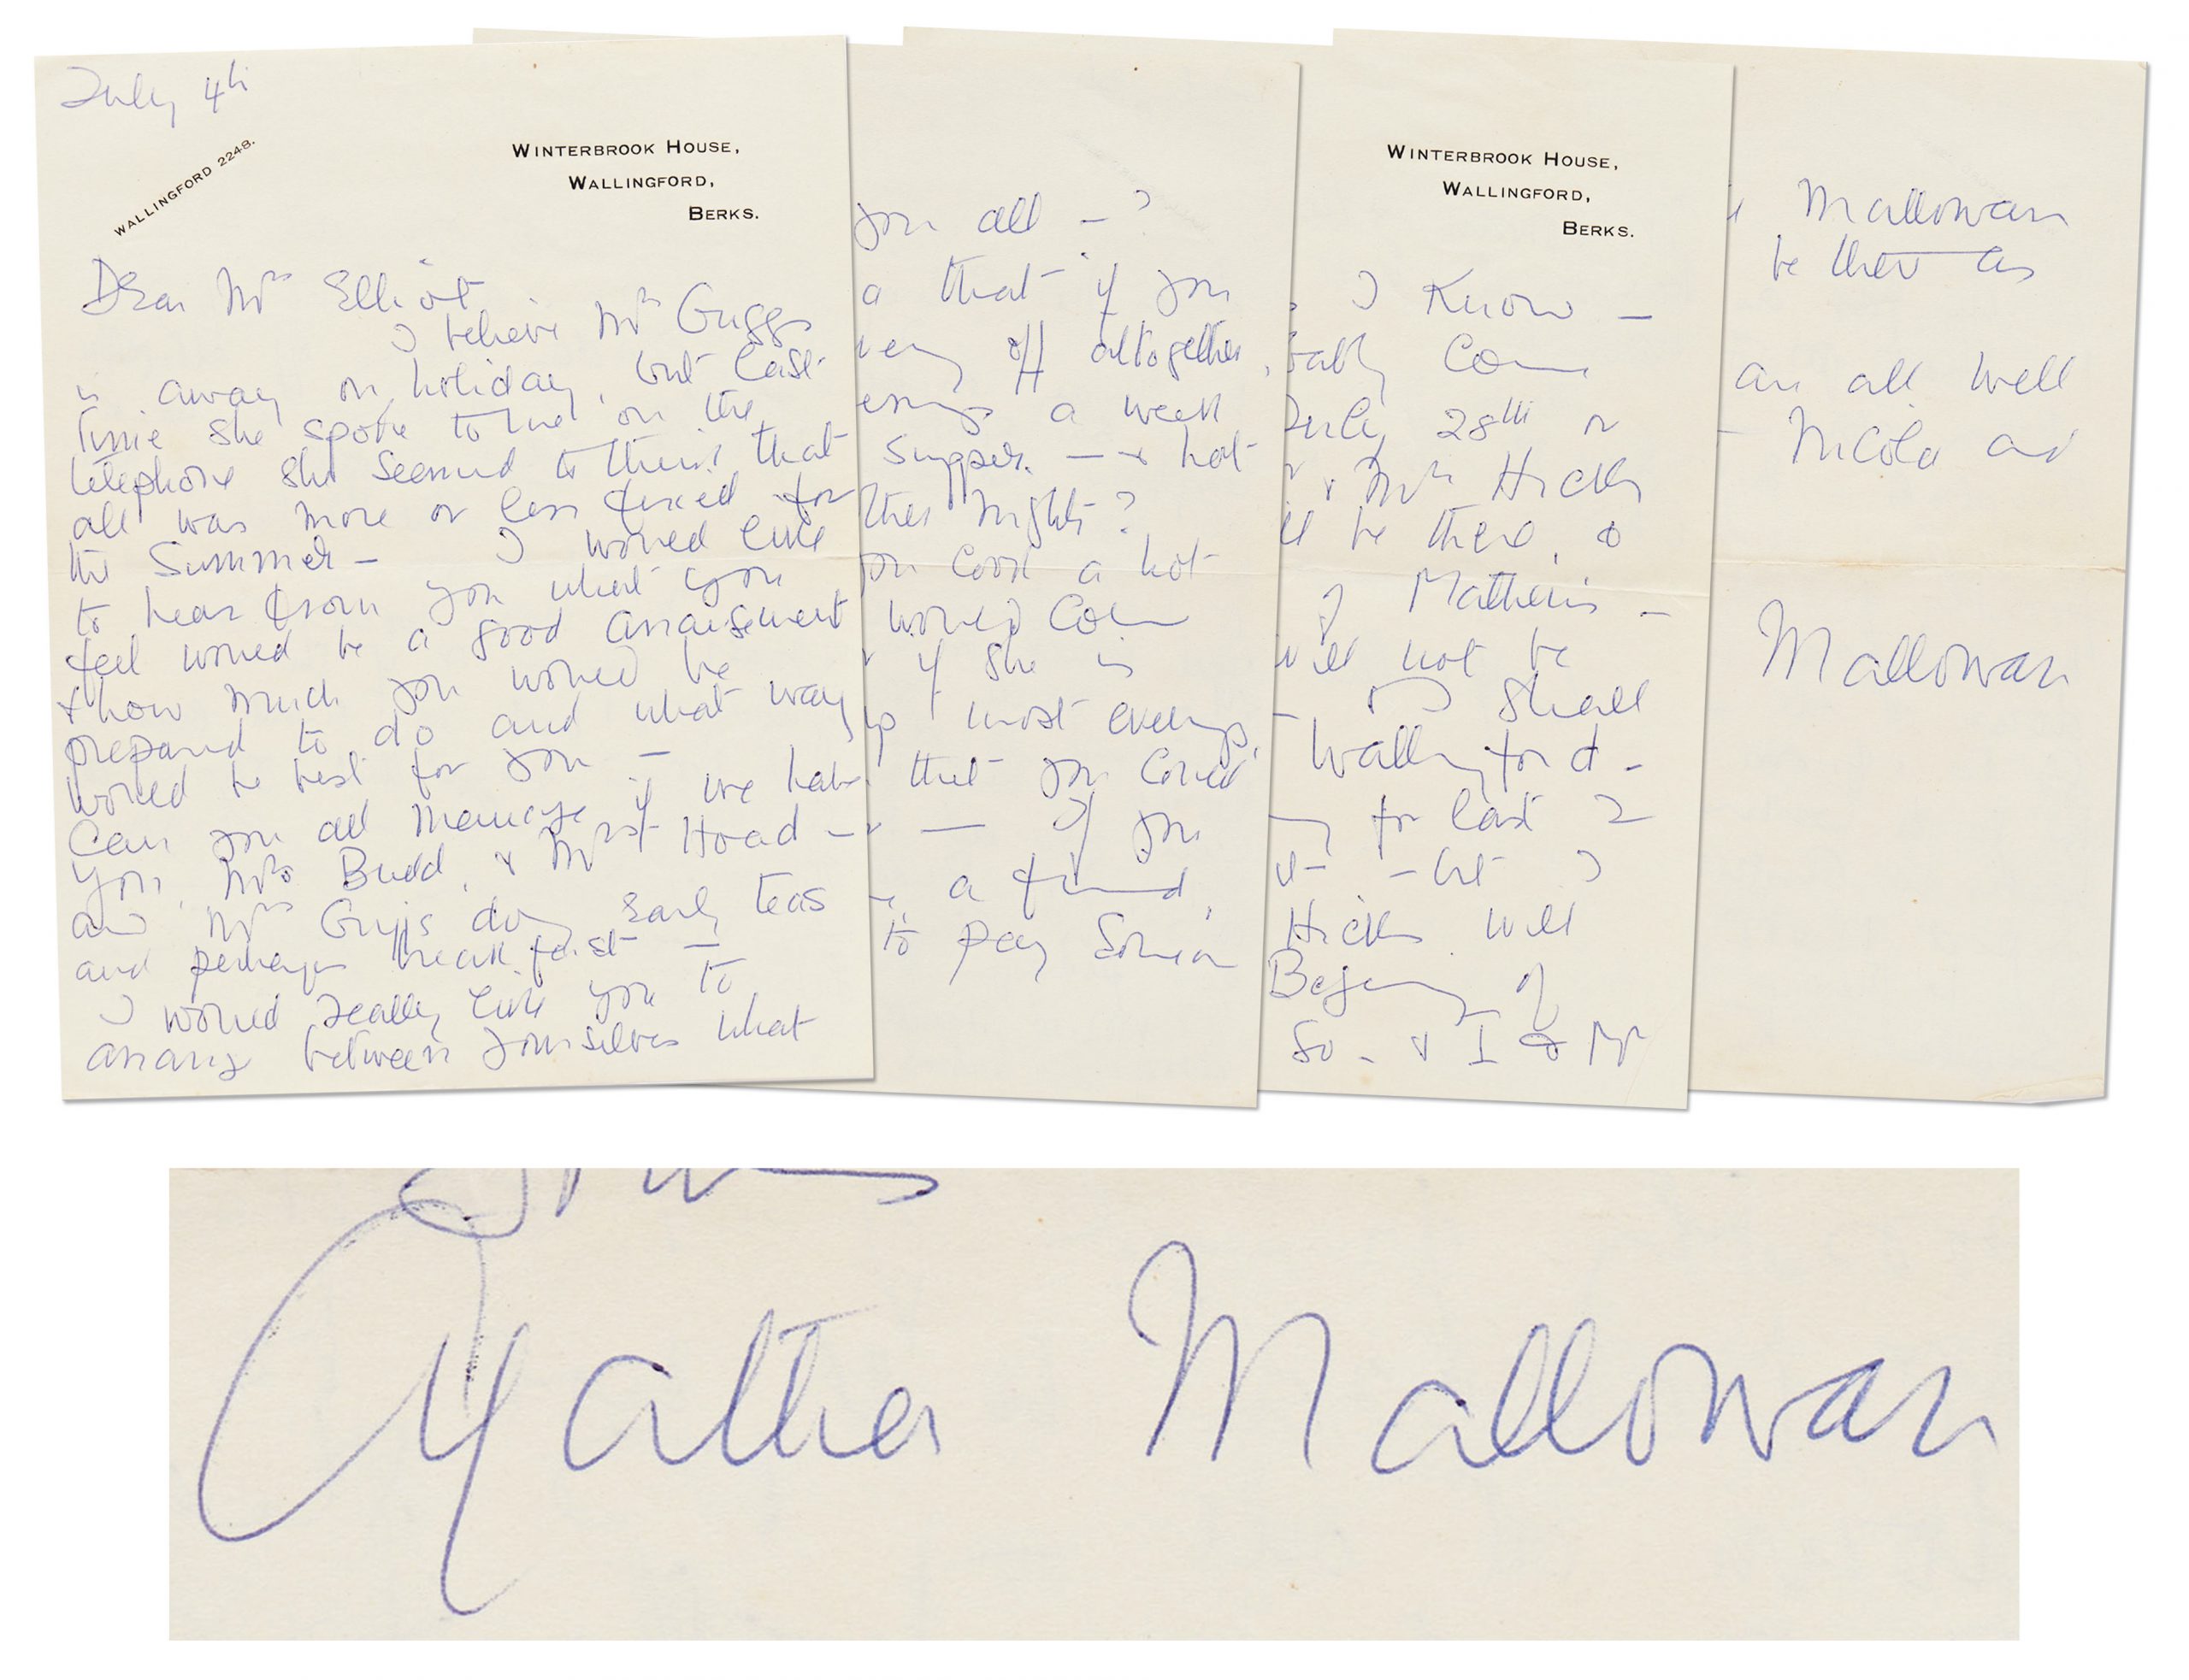 July 4th
WALLINGFORD 2248.
WINTERBROOK HOUSE,
WALLINGFORD,
BERKS.
Dear Mrs Elliot
I believe Mrs Griggs
is away on holiday, but last
time she spoke to me on the
telephone she seemed to think that
all was more or less fixed for
the Summer - I would like
to hear from you what you
feel would be a good arrangement
& how much you would be
prepared to do and what way
would be best for you -
Can you all manage if we have
you, Mrs Budd, & Mrs Hoad -
and Mrs Griggs do early teas
and perhaps breakfast -
I would really like you to
arrange between yourselves what
you all - ?
a that if you
off altogether,
a week
supper - hot
nights?
you cook a hot
would come
if she is
most evenings,
that you could
- If you
a friend,
to pay someone
WINTERBROOK HOUSE,
WALLINGFORD,
BERKS.
I know -
come
July 28th or
& Mrs Hicks
be there, &
of Mathew's -
will not be
I shall
Wallingford -
for last 2
- but I
Hicks will
Beginning of
So - & I & Mr
Mallowan
be there as
are all well
Nicola and
Mallowan
Agatha Mallowan